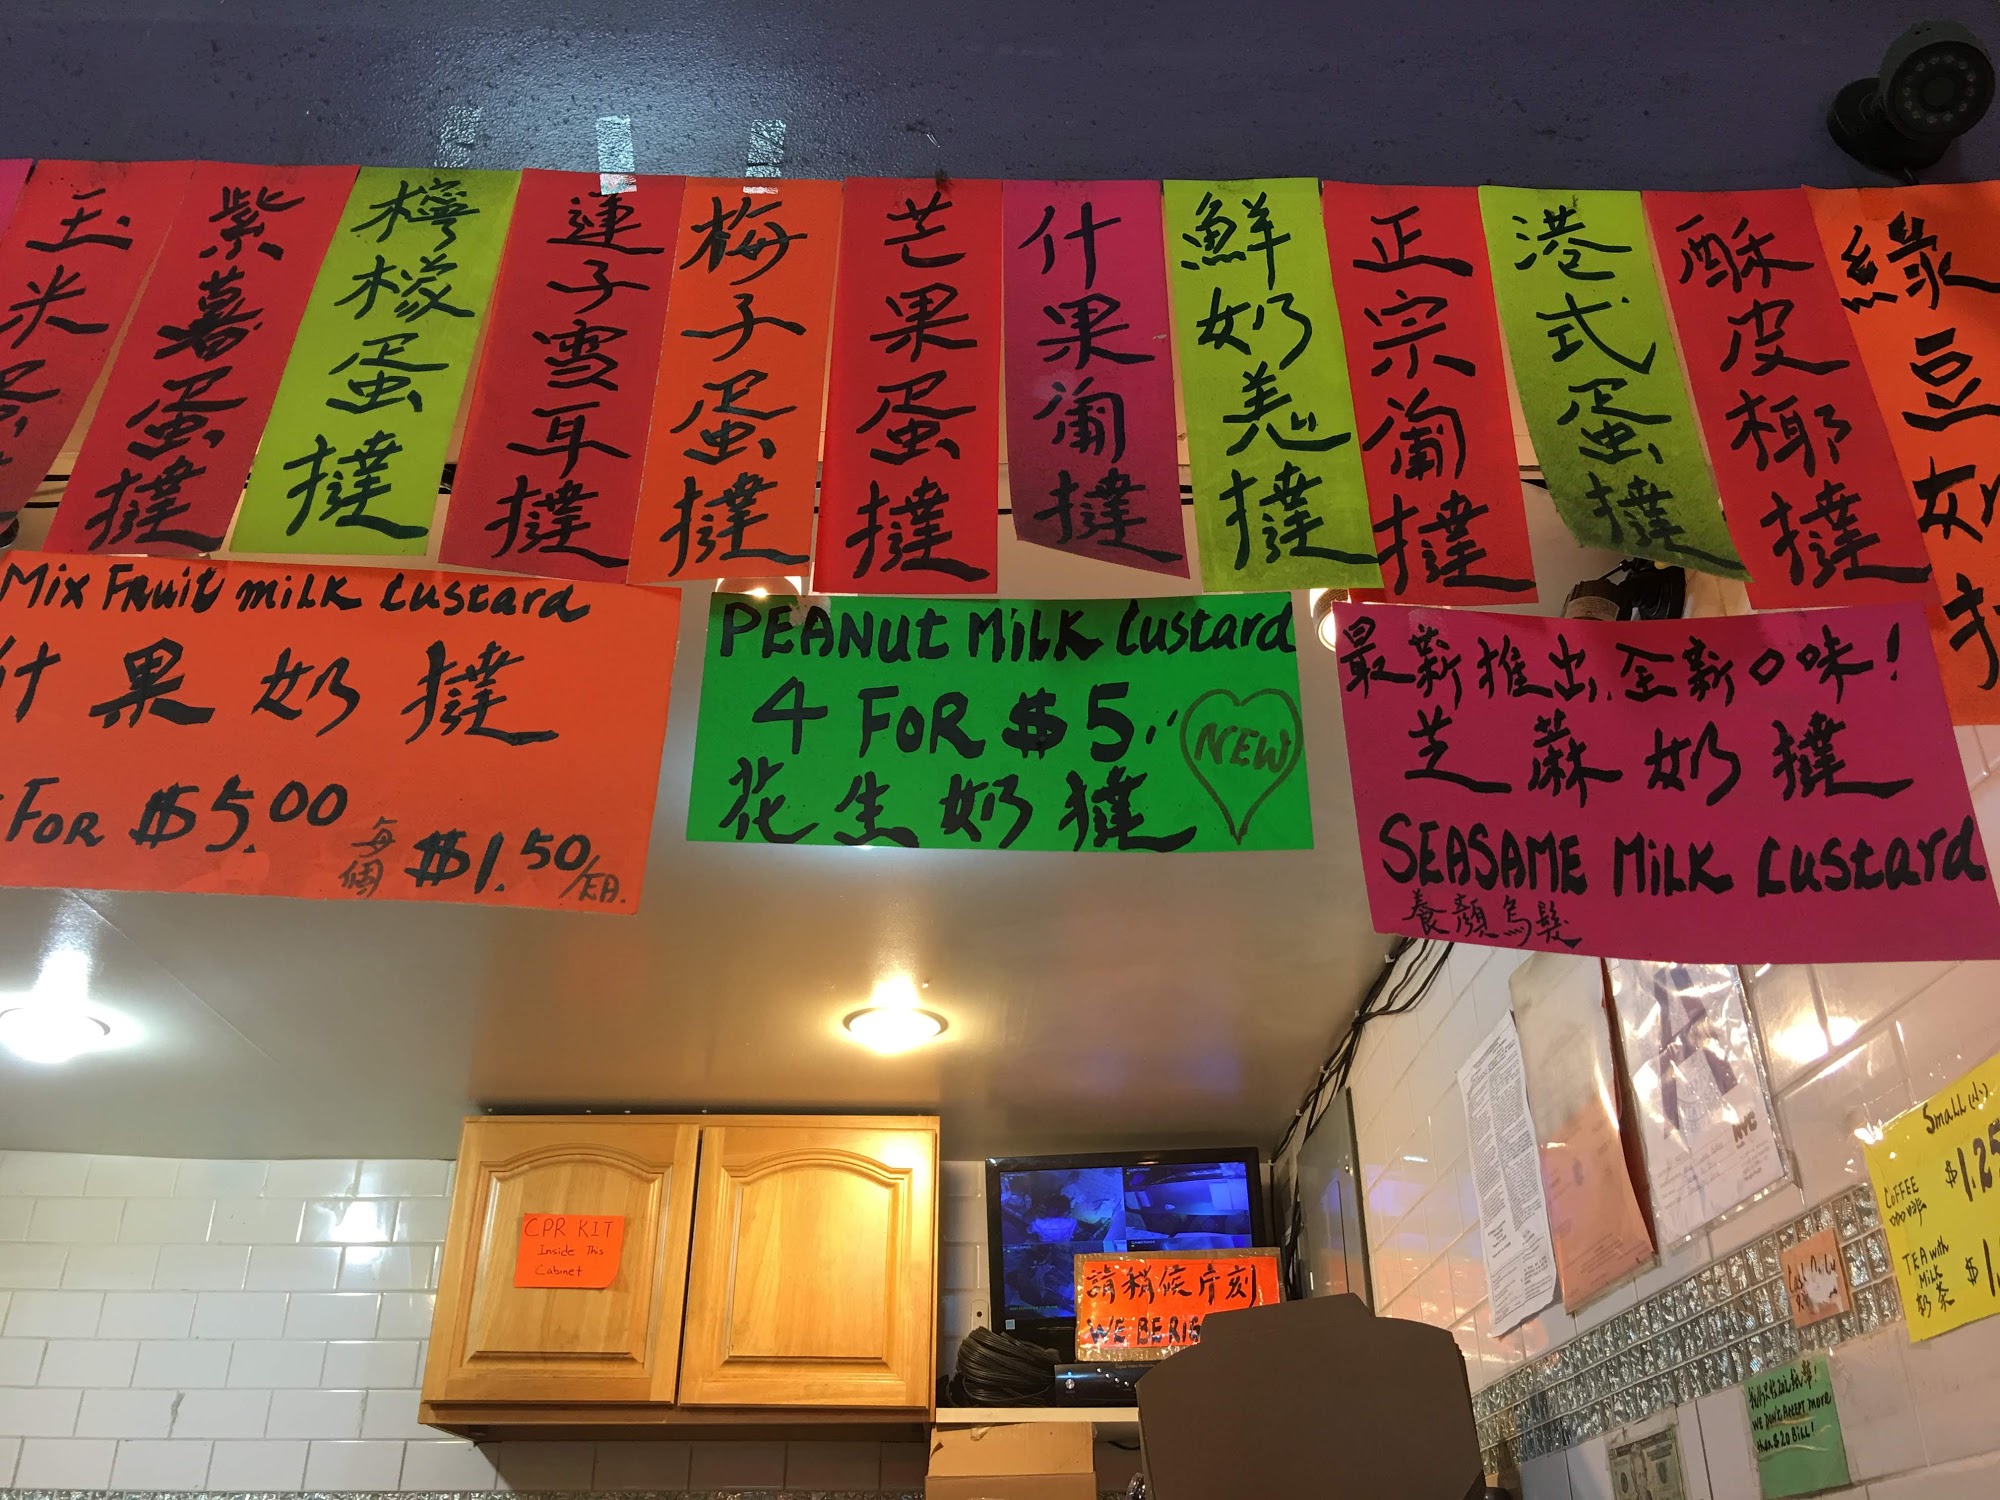 玉米蛋
紫薯蛋撻
檸檬蛋撻
蓮子雪耳撻
梅子蛋撻
芒果蛋撻
什果葡撻
鮮奶羌撻
正宗葡撻
港式蛋撻
酥皮椰撻
綠豆奶撻
Mix Fruit milk custard
什果奶撻
FOR $5.00
每個 $1.50/EA.
PEANUT MiLK Custard
4 FOR $5.
花生奶撻
NEW
最新推出,全新口味!
芝蔴奶撻
SEASAME MiLK Custard
養顏烏髮
CPR KIT
Inside This
Cabinet
請稍候片刻
WE BE RIG
Small(小)
COFFEE $1.25
TEA with
MILK $1.
奶茶
NYC
WE DON'T ACCEPT MORE
than $20 Bill!